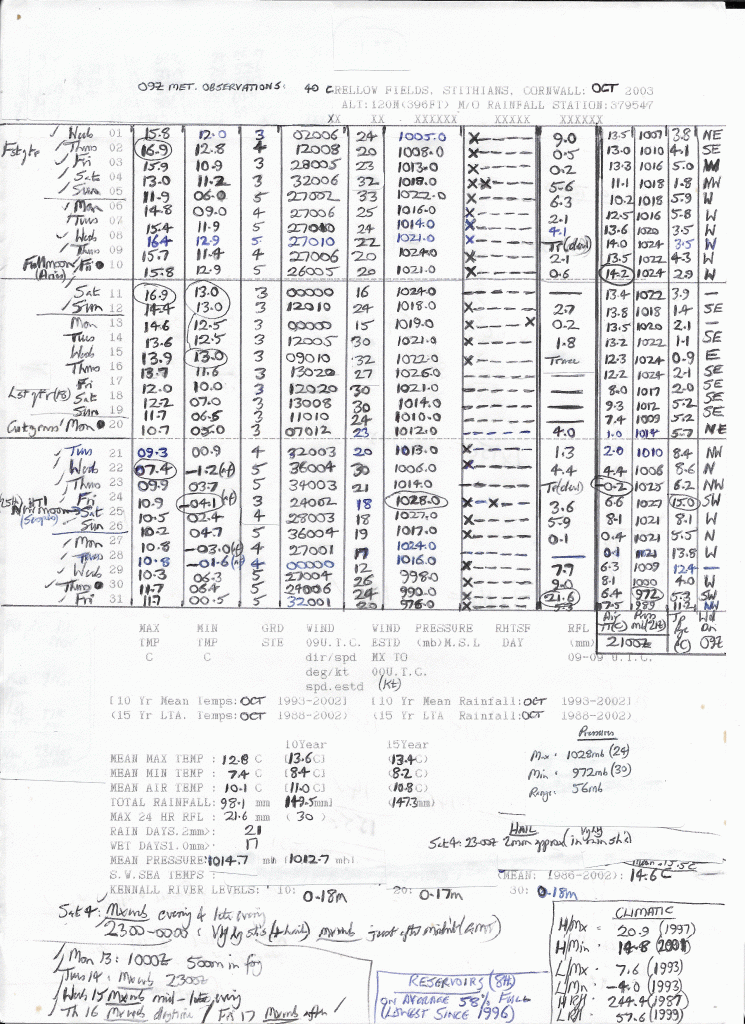 09Z MET. OBSERVATIONS: 40 CRELLOW FIELDS, STITHIANS, CORNWALL: OCT 2003
ALT:120M(396FT) M/O RAINFALL STATION:379547
XX XX . XXXXXX XXXXX XXXXXX
Wed 01 15.8 12.0 3 02006 24 1005.0 x---- 9.0 13.5 1007 3.8 NE
Fst qtr Thurs 02 16.9 12.8 4 12008 20 1008.0 x---- 0.5 13.0 1010 4.1 SE
Fri 03 15.9 10.9 3 28005 23 1013.0 x---- 0.2 13.3 1016 5.0 W
Sat 04 13.0 11.2 3 32006 32 1018.0 xx--- 5.6 11.1 1018 1.8 NW
Sun 05 11.9 06.0 5 27002 33 1022.0 x---- 6.3 10.2 1018 5.9 W
Mon 06 14.8 09.0 4 27006 25 1016.0 x---- 2.1 12.5 1016 5.8 W
Tues 07 15.4 11.9 5 27010 24 1014.0 x---- 4.1 13.6 1020 3.5 W
Wed 08 16.4 12.9 5 27010 22 1021.0 x---- Tr(dew) 14.0 1024 3.5 W
Thurs 09 15.7 11.4 4 27006 20 1024.0 x---- 2.1 13.5 1022 4.3 W
Full moon Fri 10 15.8 12.9 5 26005 20 1021.0 x---- 0.6 14.2 1024 2.9 W
Sat 11 16.9 13.0 3 00000 16 1024.0 ----- — 13.4 1022 3.9 —
Sun 12 14.4 13.0 3 12010 24 1018.0 x---- 2.7 13.8 1018 1.4 SE
Mon 13 14.6 12.5 3 00000 15 1019.0 ----x 0.2 13.5 1020 2.1 —
Tues 14 13.6 12.5 3 12005 30 1021.0 x---- 1.8 13.2 1022 1.1 SE
Wed 15 13.9 13.0 3 09010 32 1022.0 x---- Trace 12.3 1024 0.9 E
Thurs 16 13.7 11.6 3 13020 27 1026.0 ----- — 12.2 1024 2.1 SE
Fri 17 12.0 10.0 3 12020 30 1021.0 ----- — 8.0 1017 2.0 SE
Lst qtr (18) Sat 18 12.2 07.0 3 13008 30 1014.0 ----- — 9.3 1012 5.2 SE
Sun 19 11.7 06.5 3 11010 24 1010.0 ----- — 7.4 1009 5.2 SE
Cut grass Mon 20 10.7 05.0 3 07012 23 1012.0 ----- 4.0 1.0 1014 5.7 NE
Tues 21 09.3 00.9 4 32003 20 1013.0 x---- 1.3 2.0 1010 8.4 NW
Wed 22 07.4 -1.2(af) 5 36004 30 1006.0 x---- 4.4 4.4 1006 8.6 N
Thurs 23 09.9 03.7 5 34003 21 1014.0 ----- Tr(dew) -0.2 1025 6.2 NW
Fri 24 10.9 -04.1(af) 3 24002 18 1028.0 x-x-- 3.6 6.6 1027 15.0 SW
New moon Sat 25 10.5 02.4 4 28003 18 1027.0 x---- 5.9 8.1 1021 8.1 W
Sun 26 10.2 04.7 5 36004 19 1017.0 x---- 0.1 0.4 1021 5.5 N
Mon 27 10.8 -03.0(af) 4 27001 17 1024.0 ----- — 0.1 1021 13.8 W
Tues 28 10.8 -01.6(af) 4 00000 12 1016.0 x---- 7.7 6.3 1009 12.4 —
Wed 29 10.3 06.3 5 27004 26 998.0 x---- 9.0 8.1 1000 4.0 W
Thurs 30 11.7 06.4 5 27004 24 990.0 x---- 21.6 6.4 972 5.3 SW
Fri 31 11.7 00.5 5 32001 20 976.0 x---- 5.3 7.5 989 11.2 NW
MAX MIN GRD WIND WIND PRESSURE RHTSF RFL
TMP TMP STE 09U.T.C. ESTD (mb)M.S.L DAY (mm)
C C dir/spd MX TO 09-09 U.T.C.
deg/kt 00U.T.C.
spd.estd (Kt)
Air TT(°C) Press mb(21Z) Tp Rge (°C) Wd Dn 09Z
2100Z
[10 Yr Mean Temps:OCT 1993-2002] [10 Yr Mean Rainfall:OCT 1993-2002)
(15 Yr LTA. Temps:OCT 1988-2002) (15 Yr LTA Rainfall:OCT 1988-2002)
Pressures
Max: 1028mb (24)
Min: 972mb (30)
Range: 56mb
10Year 15Year
MEAN MAX TEMP : 12.8 C (13.6C) (13.4C)
MEAN MIN TEMP : 7.4 C (8.4C) (8.2C)
MEAN AIR TEMP : 10.1 C (11.0C) (10.8C)
TOTAL RAINFALL: 98.1 mm (149.5mm) (147.3mm)
MAX 24 HR RFL : 21.6 mm (30)
RAIN DAYS.2mm>: 21
WET DAYS1.0mm>: 17
MEAN PRESSURE: 1014.7 mb (1012.7 mb)
HAIL
Sat 4: 2300Z 2mm approx
S.W.SEA TEMPS : MEAN: 1986-2002): 14.6C
KENNALL RIVER LEVELS: 10: 0.18m 20: 0.17m 30: 0.18m
Sat 4: evening & late evening
2300-0000: just after midnight (GMT)
Mon 13: 1000Z 500m in fog
Tues 14: 2300Z
Wed 15 mid-late evng
Th 16 daytime / Fri 17 after/
RESERVOIRS (8th)
ON AVERAGE 58% FULL
(LOWEST SINCE 1996)
CLIMATIC
H/Mx = 20.9 (1997)
H/Min = 14.8 (2001)
L/Mx = 7.6 (1993)
L/Mn = -4.0 (1993)
H RH = 244.4 (1987)
L RH = 57.6 (1999)